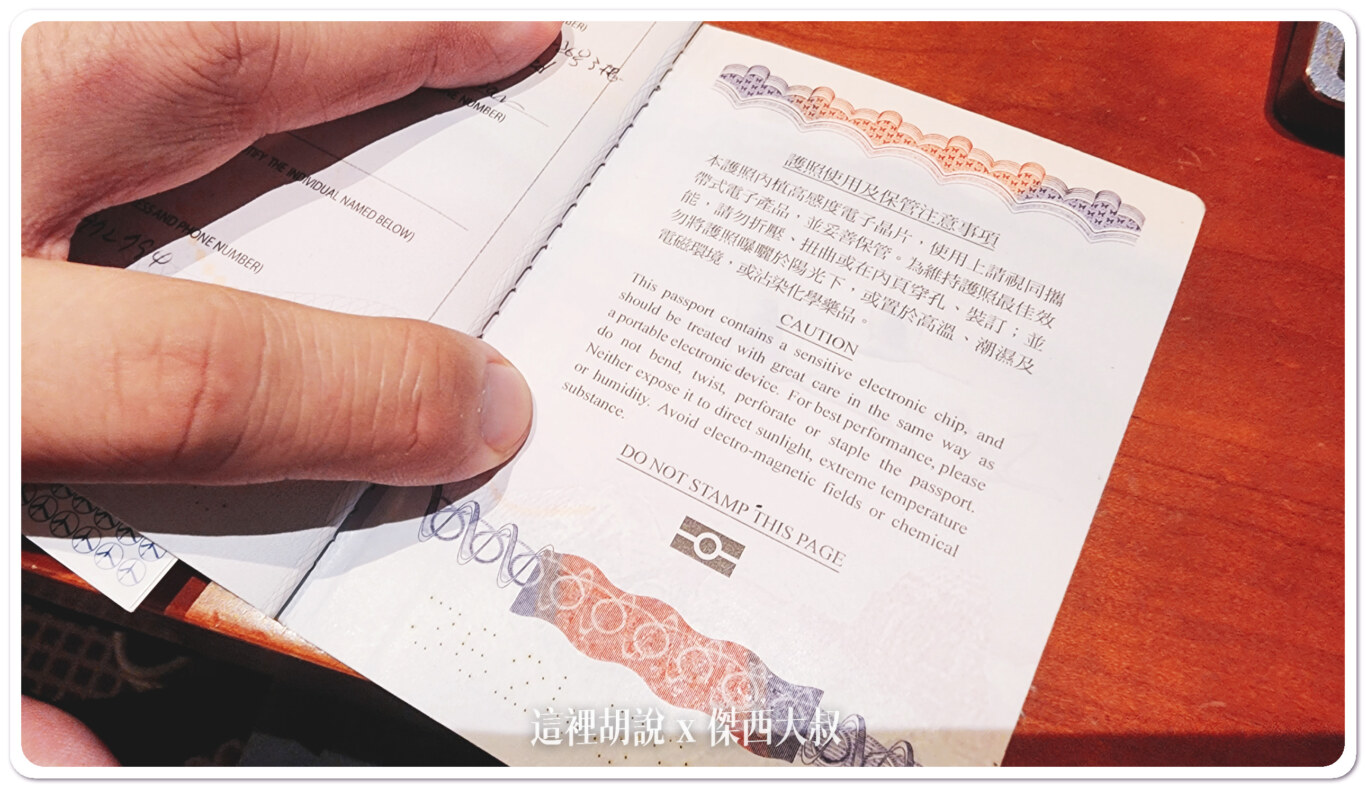 NUMBER)
TIFY THE INDIVIDUAL NAMED BELOW)
AND PHONE NUMBER)
護照使用及保管注意事項
本護照內植高感度電子晶片，使用上請視同攜
帶式電子產品，並妥善保管。為維持護照最佳效
能，請勿折壓、扭曲或在內頁穿孔、裝訂；並
勿將護照曝曬於陽光下，或置於高溫、潮濕及
電磁環境，或沾染化學藥品。
CAUTION
This passport contains a sensitive electronic chip, and
should be treated with great care in the same way as
a portable electronic device. For best performance, please
do not bend, twist, perforate or staple the passport.
Neither expose it to direct sunlight, extreme temperature
or humidity. Avoid electro-magnetic fields or chemical
substance.
DO NOT STAMP THIS PAGE
這裡胡說 x 傑西大叔